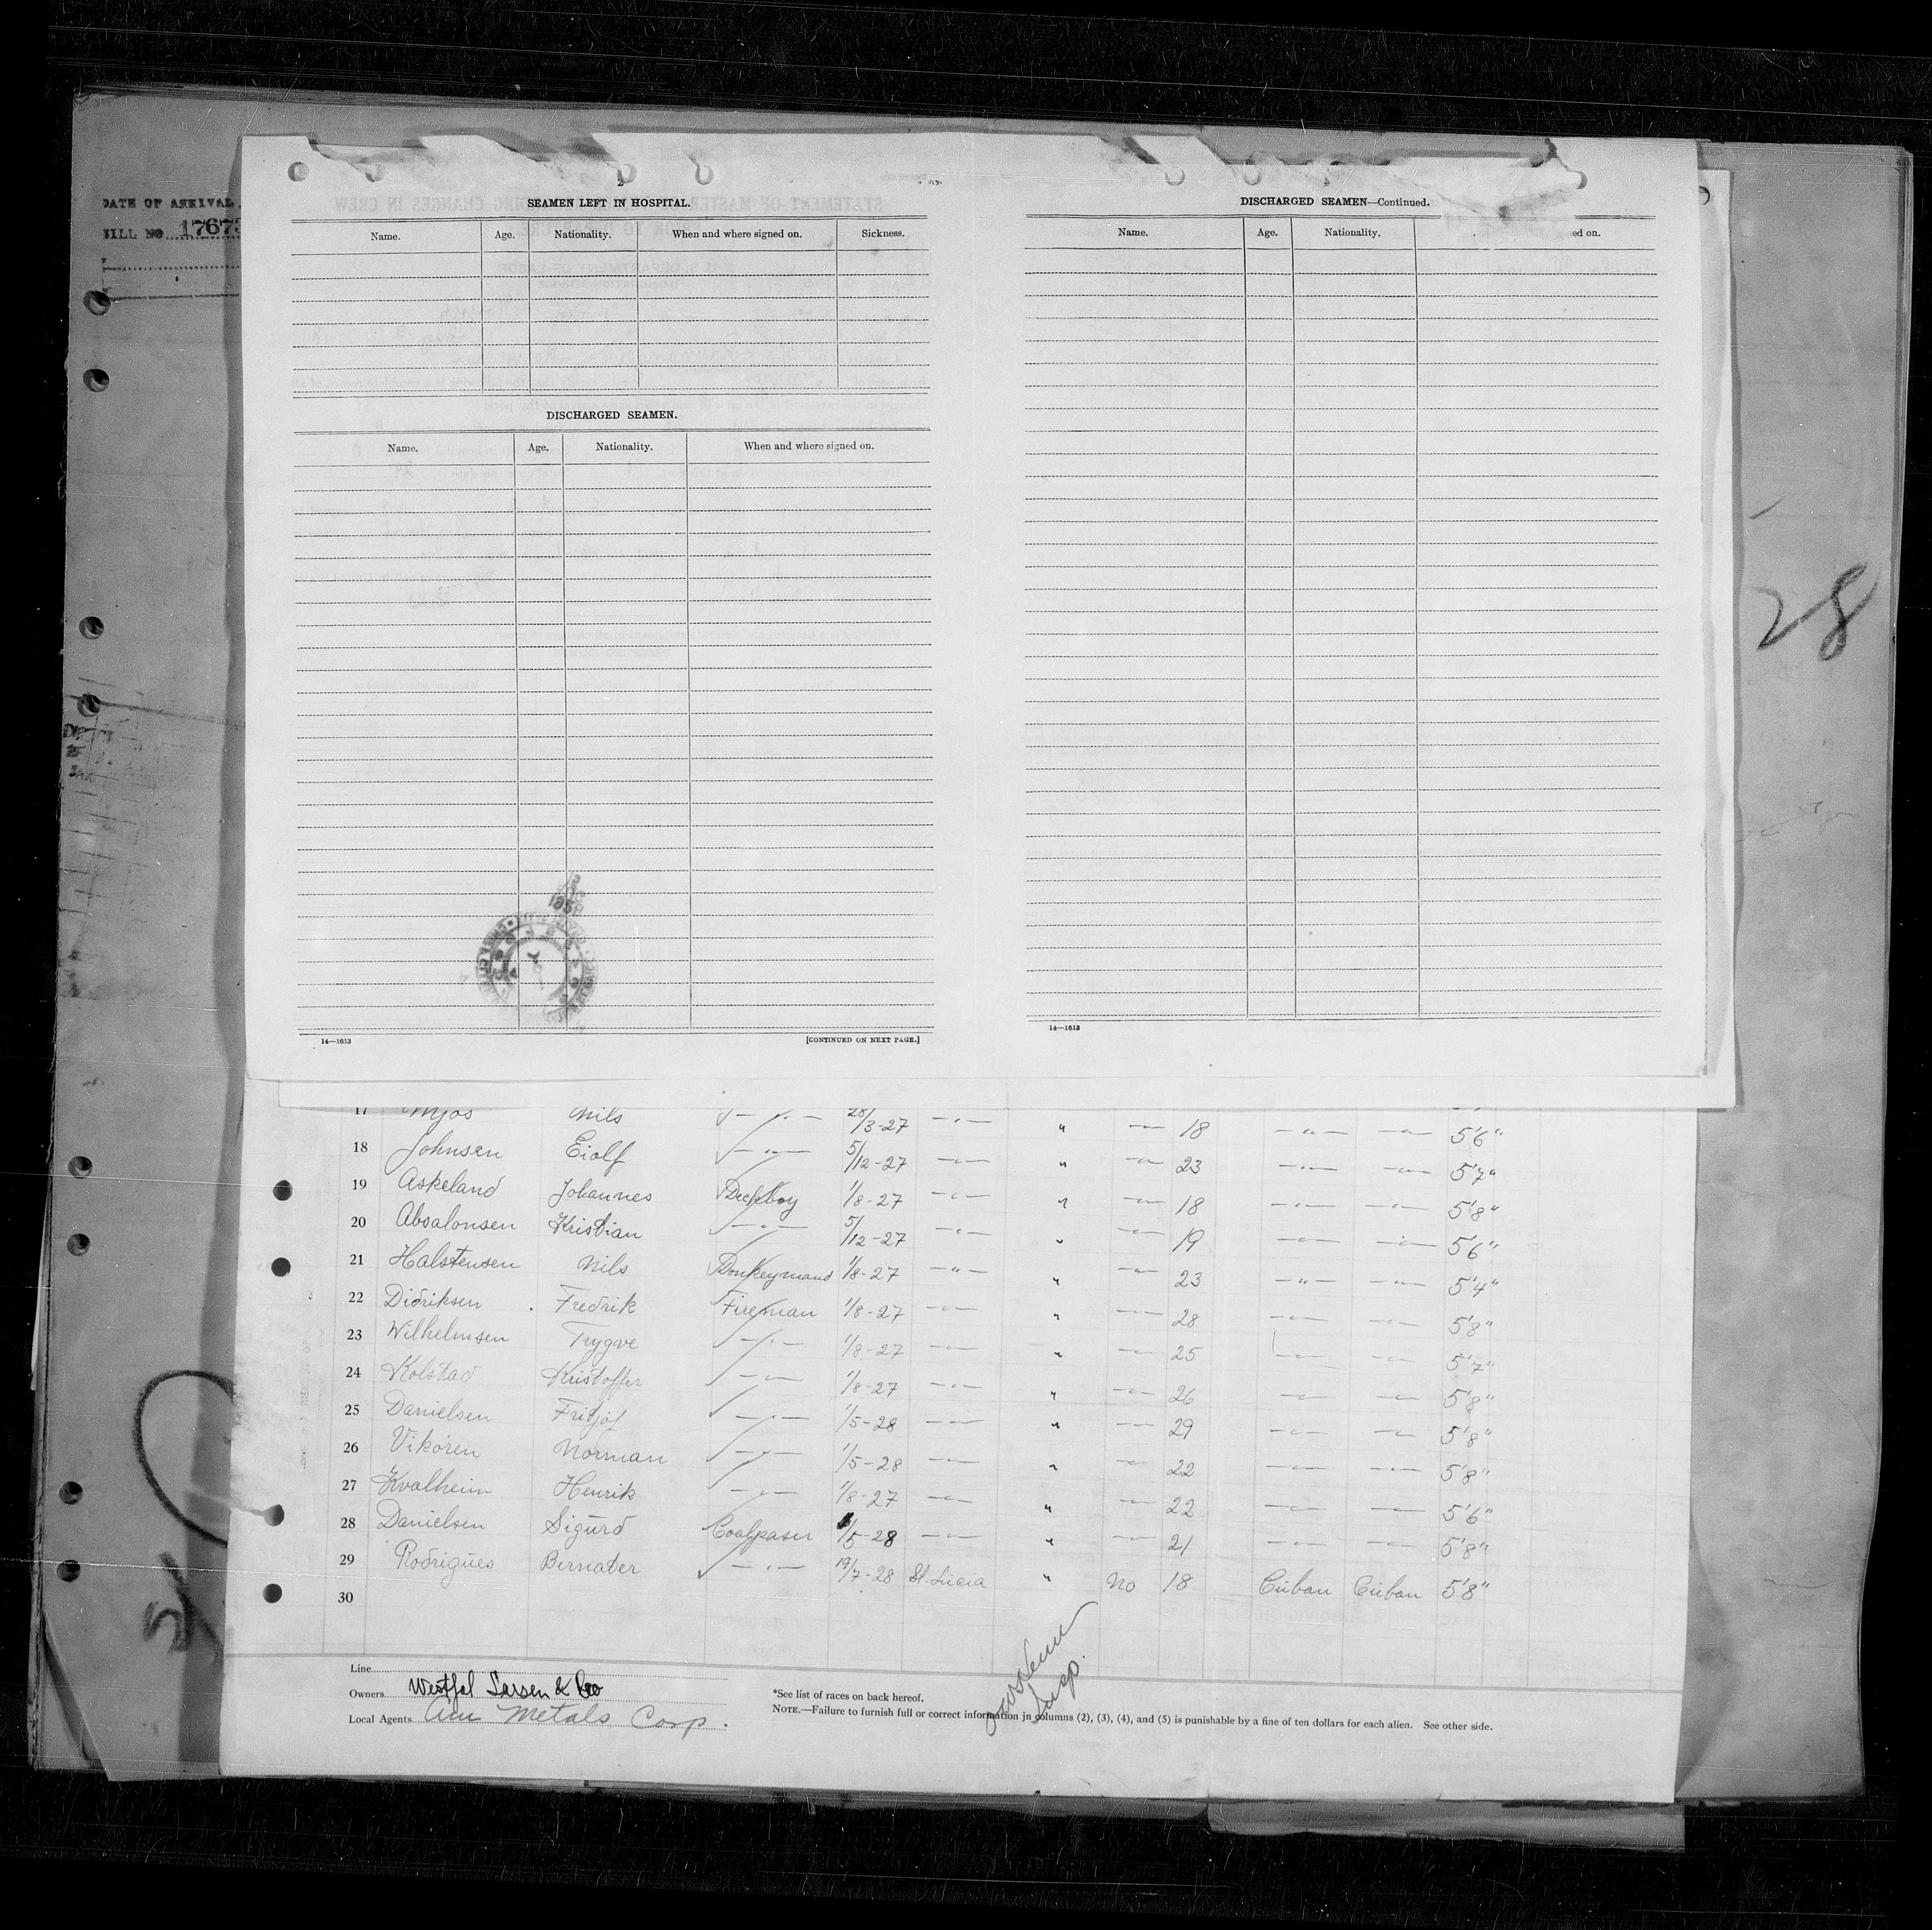 DATE OF ARRIVAL
BILL NO 17673
2
SEAMEN LEFT IN HOSPITAL.
Name. Age. Nationality. When and where signed on. Sickness.
DISCHARGED SEAMEN.
Name. Age. Nationality. When and where signed on.
14—1613 [CONTINUED ON NEXT PAGE.]
DISCHARGED SEAMEN—Continued.
Name. Age. Nationality. ed on.
14—1613
28
17 Mjos Nils — " — 28/3-27 — " — " — " — 18 — " — — " — 5'6"
18 Johnsen Eiolf — " — 5/12-27 — " — " — " — 23 — " — — " — 5'7"
19 Askeland Johannes Deckboy 1/8-27 — " — " — " — 18 — " — — " — 5'8"
20 Absalonsen Kristian — " — 5/12-27 — " — " — " — 19 — " — — " — 5'6"
21 Halstensen Nils Donkeymand 1/8-27 — " — " — " — 23 — " — — " — 5'4"
22 Didriksen Fredrik Fireman 1/8-27 — " — " — " — 28 — " — — " — 5'8"
23 Wilhelmsen Trygve — " — 1/8-27 — " — " — " — 25 — " — — " — 5'7"
24 Kolstad Kristoffer — " — 1/8-27 — " — " — " — 26 — " — — " — 5'8"
25 Danielsen Fritjof — " — 1/5-28 — " — " — " — 29 — " — — " — 5'8"
26 Vikoren Norman — " — 1/5-28 — " — " — " — 22 — " — — " — 5'8"
27 Kvalheim Henrik — " — 1/8-27 — " — " — " — 22 — " — — " — 5'6"
28 Danielsen Sigurd Coalpaser 1/5-28 — " — " — " — 21 — " — — " — 5'8"
29 Rodrigues Bernater — " — 19/7-28 St. Lucia " No 18 Cuban Cuban 5'8"
30
Line
Owners Westfal Larsen & Co
Local Agents Am Metals Corp.
Insp.
*See list of races on back hereof.
NOTE.—Failure to furnish full or correct information in columns (2), (3), (4), and (5) is punishable by a fine of ten dollars for each alien. See other side.